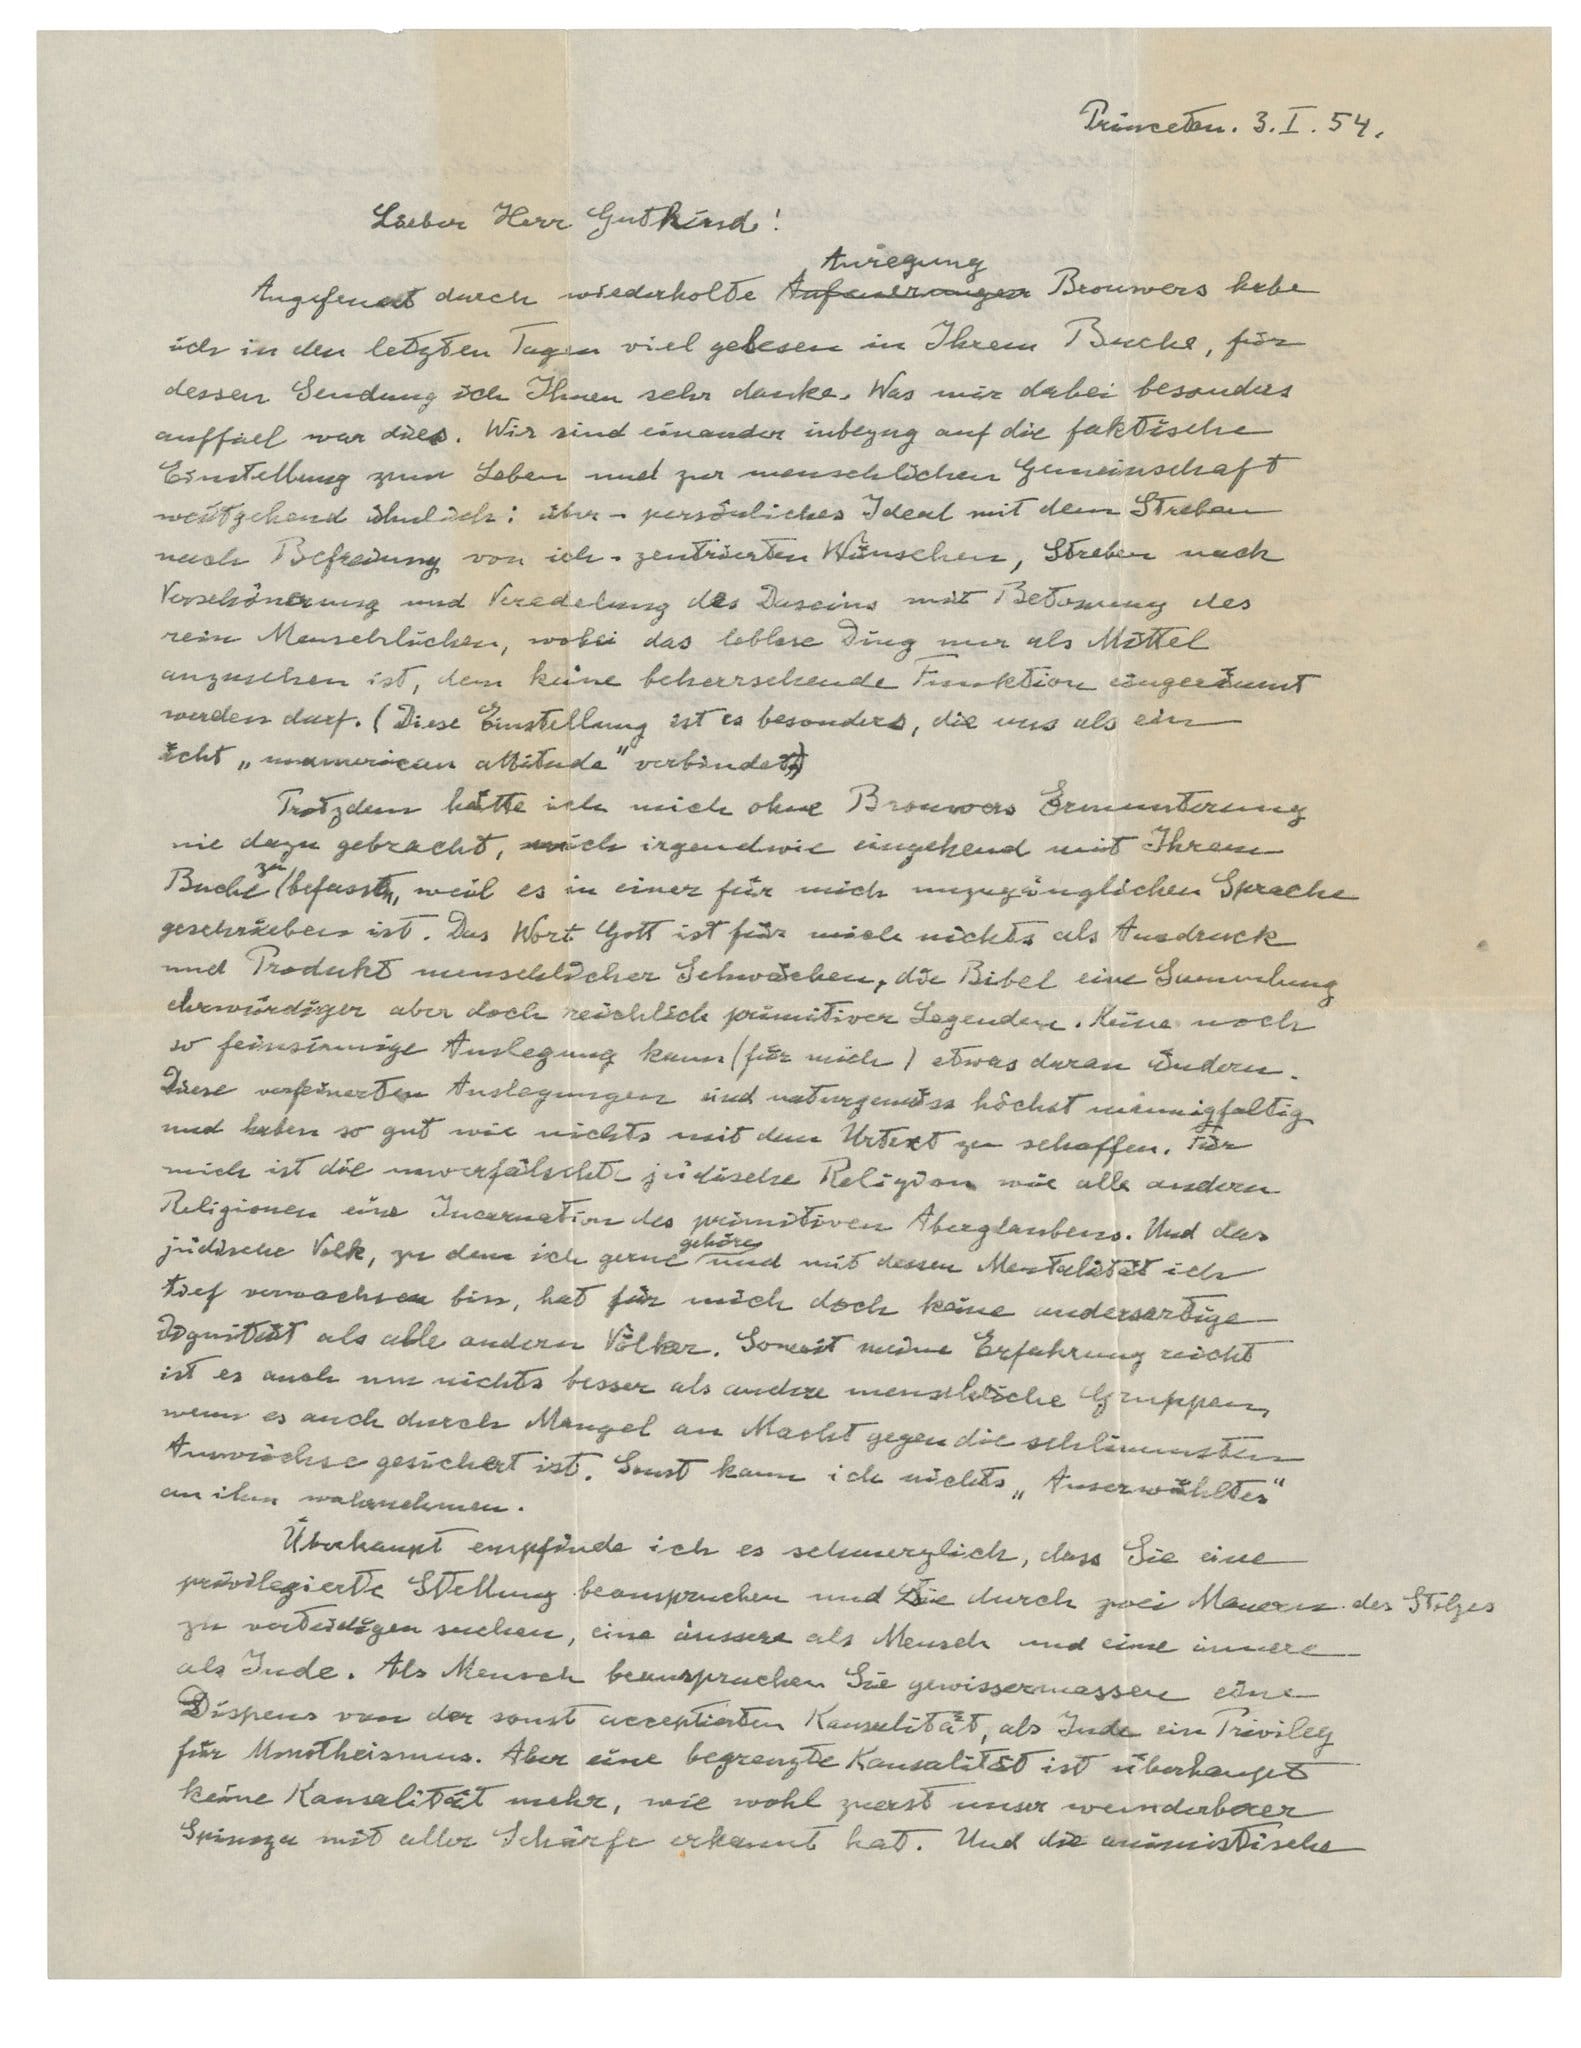 Princeton. 3. I. 54.
Lieber Herr Gutkind!
Anregung
Angefeuert durch wiederholte Anfeuerungen Brouwers habe
ich in den letzten Tagen viel gelesen in Ihrem Buche, für
dessen Sendung ich Ihnen sehr danke. Was mir dabei besonders
auffiel war dies. Wir sind einander inbezug auf die faktische
Einstellung zum Leben und zur menschlichen Gemeinschaft
weitgehend ähnlich: über-persönliches Ideal mit dem Streben
nach Befreiung von ich-zentrierten Wünschen, Streben nach
Verschönerung und Veredelung des Daseins mit Betonung des
rein Menschlichen, wobei das leblose Ding nur als Mittel
anzusehen ist, dem keine beherrschende Funktion eingeräumt
werden darf. (Diese Einstellung ist es besonders, die uns als ein
echt „unamerican attitude“ verbindet.)
Trotzdem hätte ich mich ohne Brouwers Ermunterung
nie dazu gebracht, mich irgendwie eingehend mit Ihrem
Buche zu befassen, weil es in einer für mich unzugänglichen Sprache
geschrieben ist. Das Wort Gott ist für mich nichts als Ausdruck
und Produkt menschlicher Schwächen, die Bibel eine Sammlung
ehrwürdiger aber doch reichlich primitiver Legenden. Keine noch
so feinsinnige Auslegung kann (für mich) etwas daran ändern.
Diese verfeinerten Auslegungen sind naturgemäss höchst mannigfaltig
und haben so gut wie nichts mit dem Urtext zu schaffen. Für
mich ist die unverfälschte jüdische Religion wie alle andern
Religionen eine Incarnation des primitiven Aberglaubens. Und das
jüdische Volk, zu dem ich gerne gehöre und mit dessen Mentalität ich
tief verwachsen bin, hat für mich doch keine andersartige
Dignität als alle andern Völker. Soweit meine Erfahrung reicht
ist es auch um nichts besser als andere menschliche Gruppen,
wenn es auch durch Mangel an Macht gegen die schlimmsten
Auswüchse gesichert ist. Sonst kann ich nichts „Auserwähltes“
an ihm wahrnehmen.
Überhaupt empfinde ich es schmerzlich, dass Sie eine
privilegierte Stellung beanspruchen und sie durch zwei Mauern des Stolzes
zu verteidigen suchen, eine äussere als Mensch und eine innere
als Jude. Als Mensch beanspruchen Sie gewissermassen eine
Dispens von der sonst acceptierten Kausalität, als Jude ein Privileg
für Monotheismus. Aber eine begrenzte Kausalität ist überhaupt
keine Kausalität mehr, wie wohl zuerst unser wunderbarer
Spinoza mit aller Schärfe erkannt hat. Und die animistische